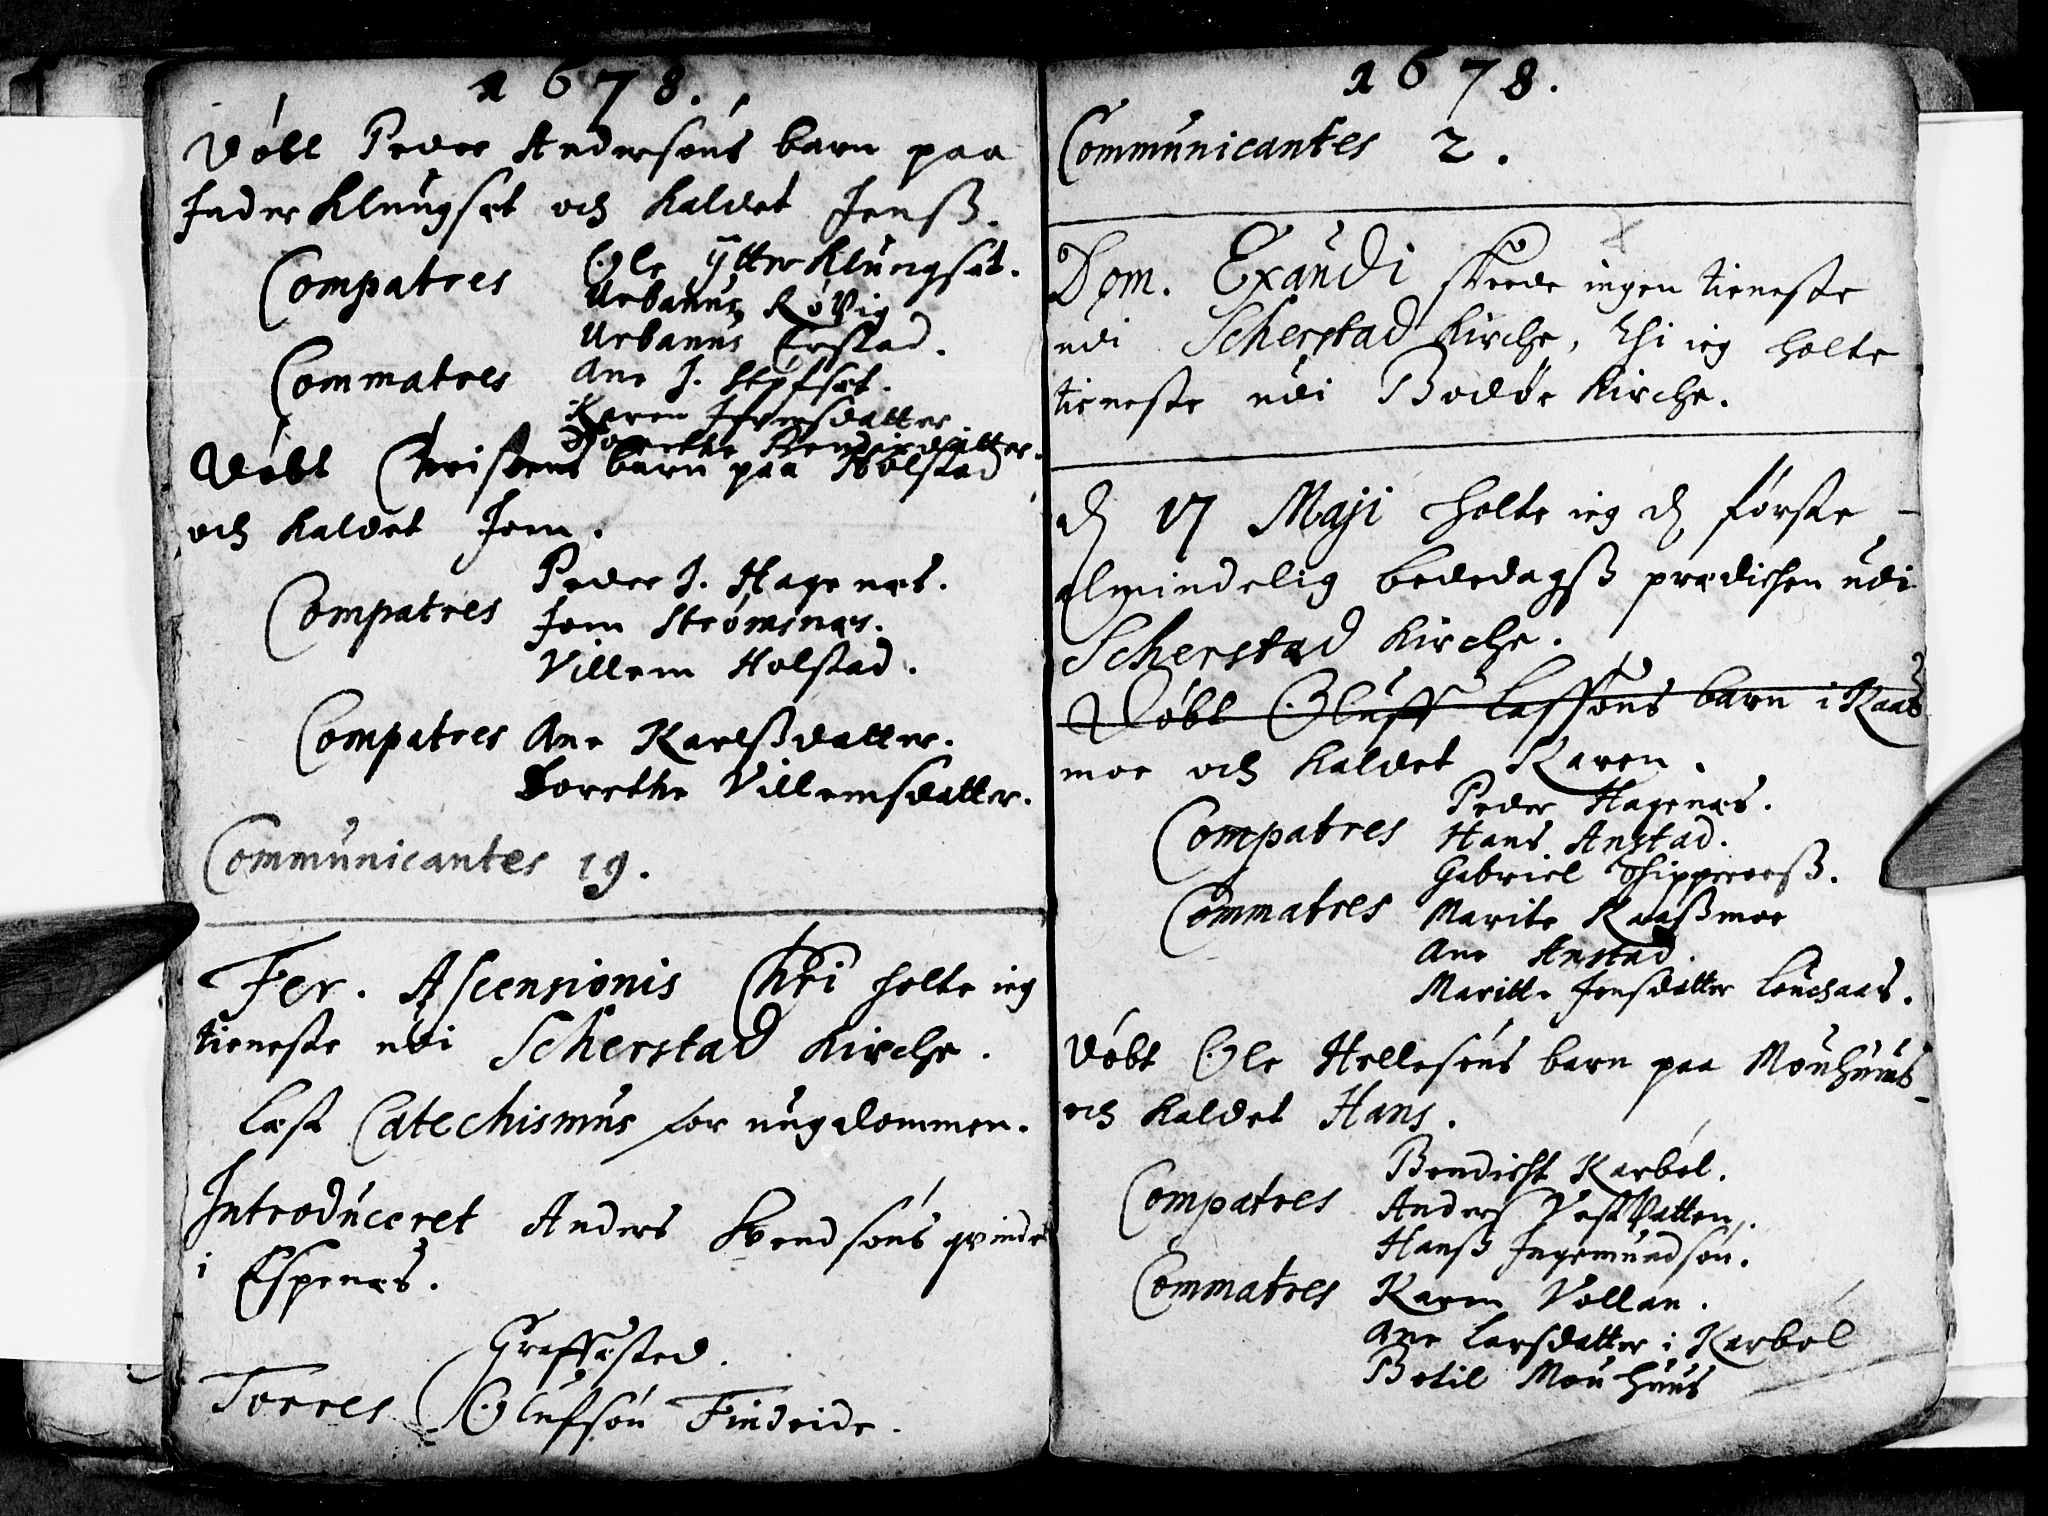 1678.
Døbt Peder Andersøns barn paa
Inder Klungsæt och kaldet Jenß.
Compatres Ole ÿtter Klungsæt.
Urbanus Røvig
Urbanus Erstad.
Commatres Ane J. Stpfsæt.
Karen Iffversdatter.
Dorethe Bendixdatter.
Døbt Christens barn paa Holstad
och kaldet Jon.
Peder J. Hagenæs.
Compatres Jon Strømsnæs.
Villem Holstad.
Compatres Ane Karlßdatter.
Dorethe Villemsdatter.
Communicantes 19.
Fer. Ascensionis Chri holte ieg
tieneste udi Scherstad Kirche.
Læst Catechismus for ungdommen.
Introduceret Anders Svendsøns qvinde
i Espenæs.
Graffæsted.
Torres Olufsøn Findeide.
1678.
Communicantes 2.
Dom. Exaudi skeede ingen tieneste
udi Scherstad Kirche, thi ieg holte
tieneste udi Bodøe Kirche.
d 17 Maji holte ieg d første
almindelig bededagß prædichen udi
Scherstad Kirche.
Døbt Oluff Lassøns barn i Kaas
moe och kaldet Karen.
Peder Hagenæs.
Compatres Hans Anstad.
Gabriel Schipperoeß.
Commatres Marite Kaaßmoe
Ane Anstad.
Maritte Jensdatter Løuchaas.
Døbt Ole Hellesøns barn paa Mouhuus
och kaldet Hans.
Bendicht Karbøl.
Compatres Anders Vestvatten.
Hanß Ingemundsøn.
Commatres Karen Vollan.
Ane Larsdatter i Karbøl
Botil Mouhuus